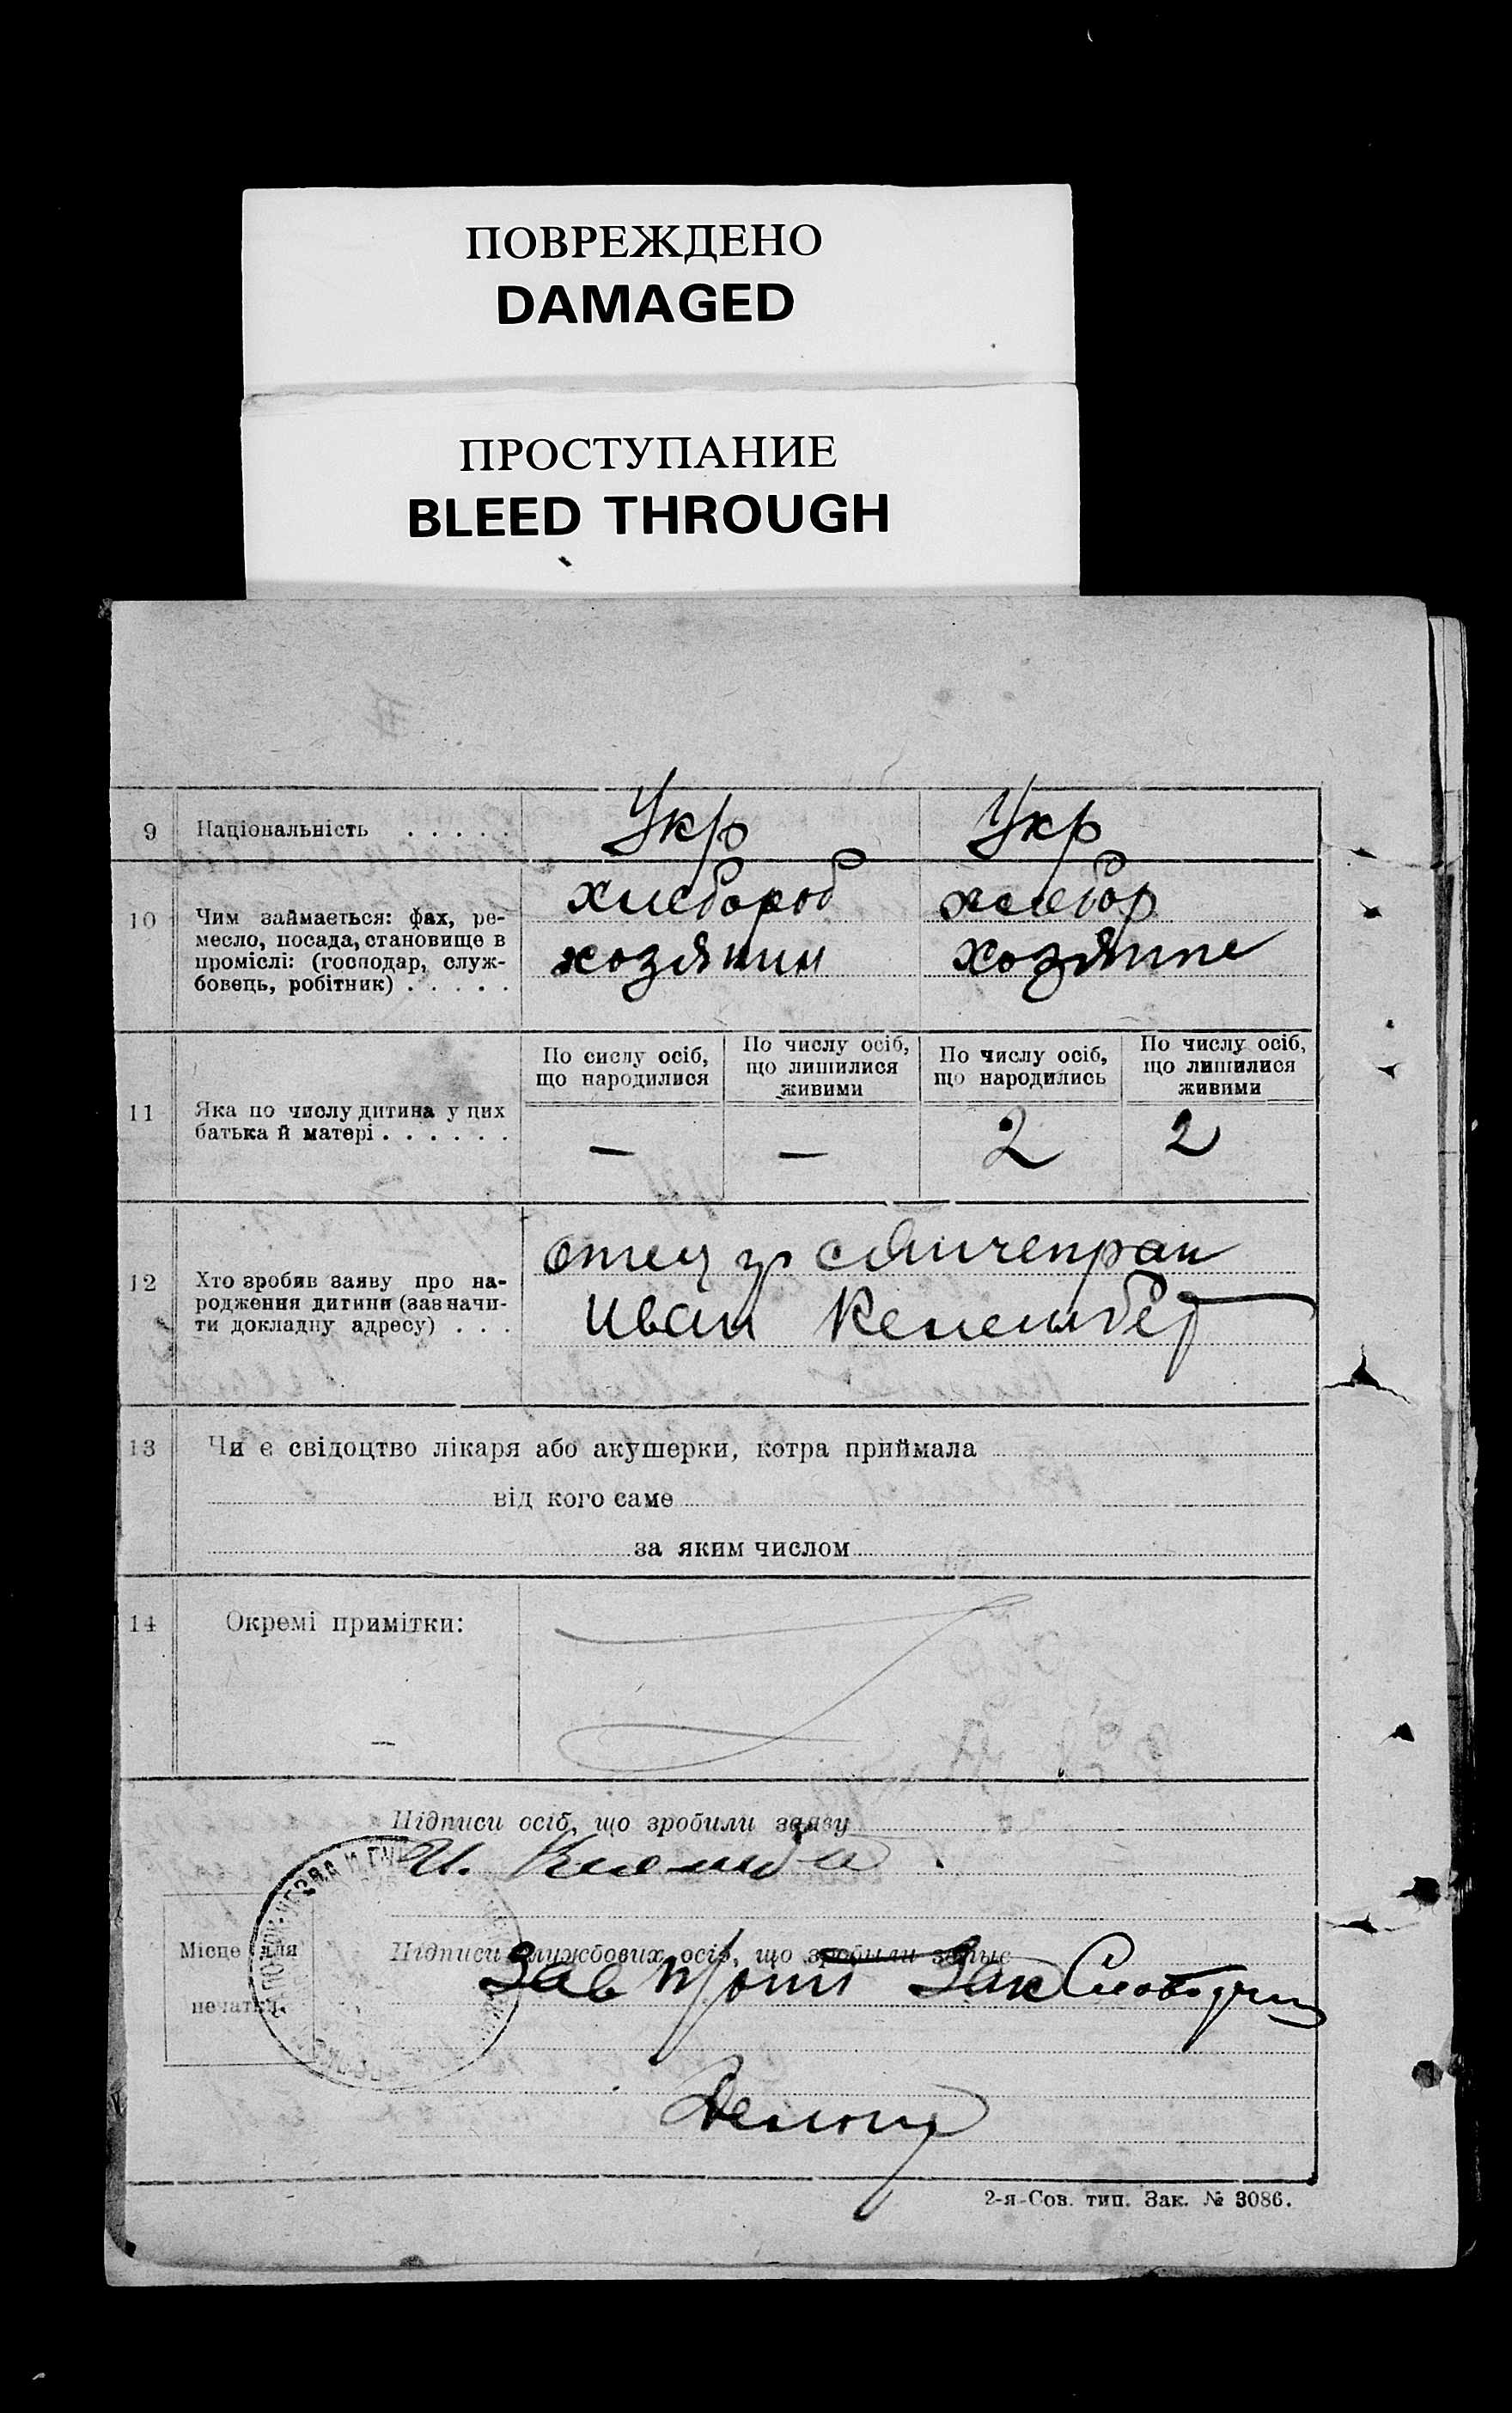 ПОВРЕЖДЕНО
DAMAGED
ПРОСТУПАНИЕ
BLEED THROUGH
9 Національність . . . . . Укр Укр
10 Чим займаеться: фах, ре-
месло, посада, становище в
проміслі: (господар, служ-
бовець, робітник) . . . . .
хлебороб хлебор
хозяин хозяине
11 Яка по числу дитина у цих
батька й матері . . . . . .
По сислу осіб,
що народилися
По числу осіб,
що лишилися
живими
По числу осіб,
що народились
По числу осіб,
що лишилися
живими
— — 2 2
12 Хто зробив заяву про на-
родження дитини (зазначи-
ти докладну адресу) . . .
отец гр
Иван
13 Чи е свідоцтво лікаря або акушерки, котра приймала
від кого саме
за яким числом
14 Окремі примітки:
—
Підписи осіб, що зробили заяву
И.
Місце для
печатки.
Підписи службових осіб, що зробили запис
Зав
2-я Сов. тип. Зак. № 3086.